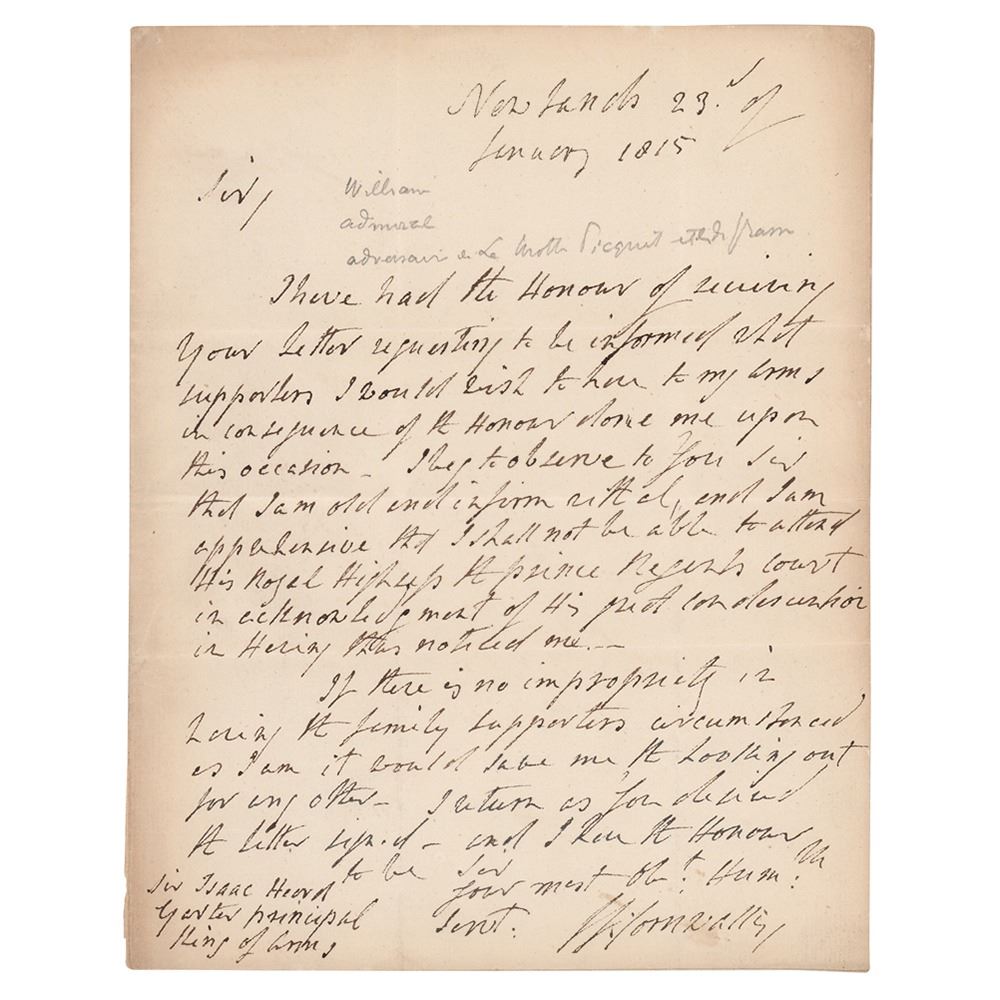 Newlands 23.d of
January 1815
Sir,
William
admiral
adversaire de La Motte Picquet
I have had the Honour of receiving
Your Letter requesting to be informed what
supporters I would wish to have to my Arms
in consequence of the Honour done me upon
this occasion - I beg to observe to You Sir
that I am old and infirm withal, and I am
apprehensive that I shall not be able to attend
His Royal Highness the prince Regents court
in acknowledgment of His great condescension
in Having thus noticed me. -
If there is no impropriety in
Having the family supporters circumstanced
as I am it would save me the Looking out
for any other - I return as You desired
the letter signed - and I have the Honour
to be Sir
Your most Obt. Hum.
Servt. Wm Cornwallis
Sir Isaac Heard
Garter principal
King of Arms